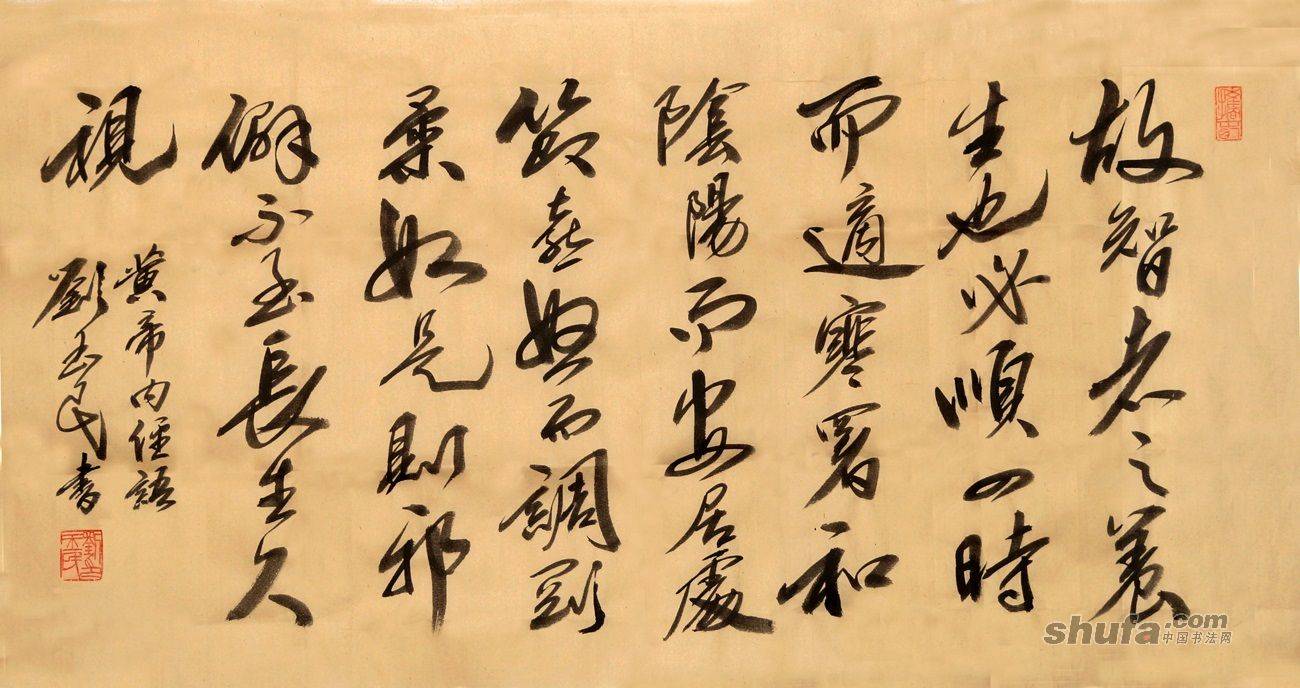 故智者之養
生也必順四時
而適寒暑和
陰陽而安居處
節喜怒而調剛
柔如是則邪
僻不至長生久
視
黄帝内經語
劉玉民書
shufa.com
中国书法网